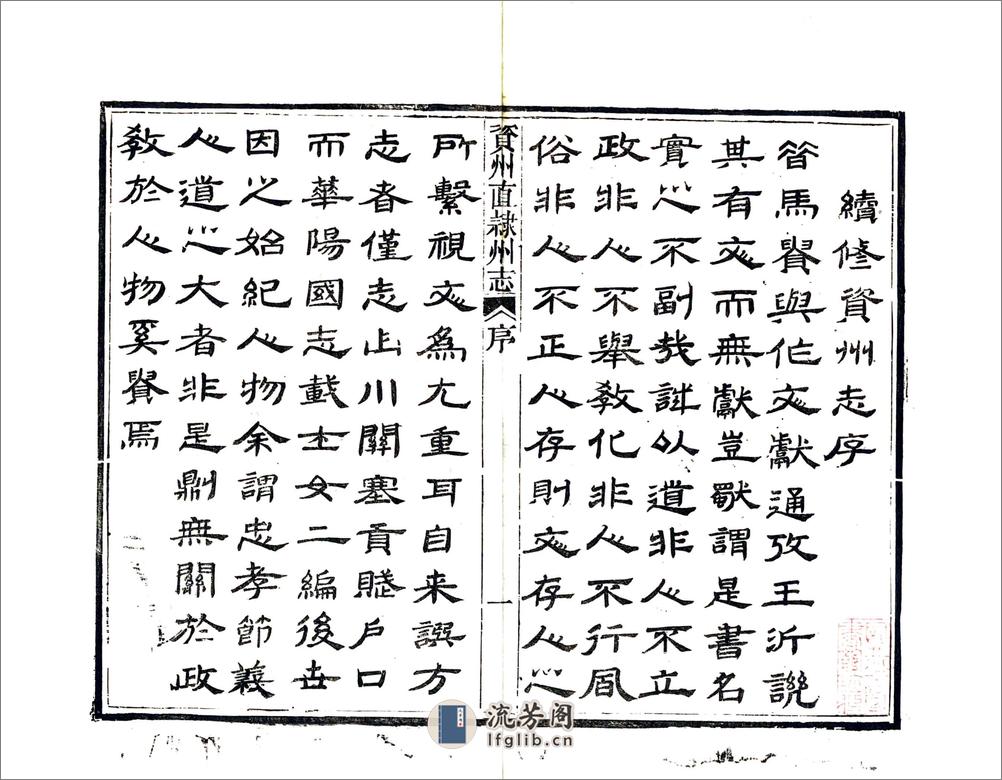 續修資州志序
昔馬貴與作文獻通攷王沂譏
其有文而無獻豈謂是書名
實之不副哉誠以道非人不立
政非人不舉敎化非人不行風
俗非人不正人存則文存人之
資州直隸州志 序 一
所繫視文爲尤重耳自来譔方
志者僅志山川關塞貢賦戶口
而華陽國志載士女二編後世
因之始紀人物余謂忠孝節義
人道之大者非是則無關於政
敎於人物奚貴焉
流芳阁
lfglib.cn